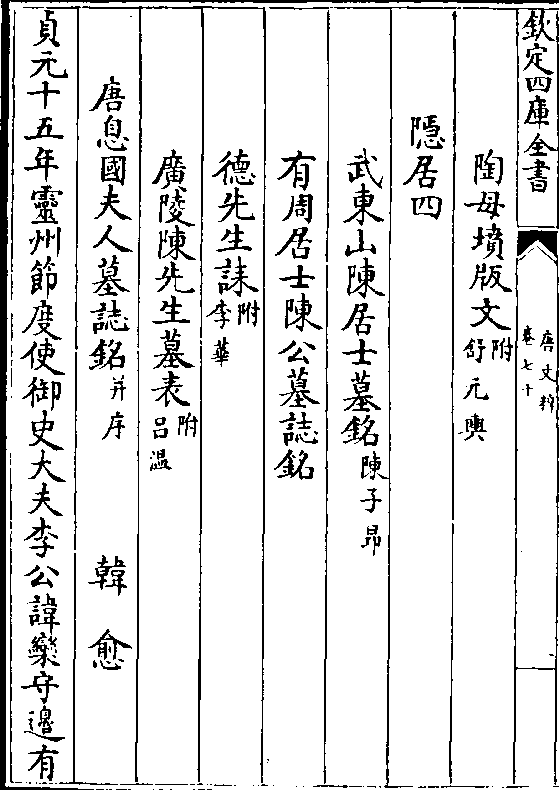 欽定四庫全書
唐文粹
卷七十
陶母墳版文附舒元輿
隱居四
武東山陳居士墓銘陳子昂
有周居士陳公墓誌銘
德先生誄附李華
廣陵陳先生墓表附呂溫
唐息國夫人墓誌銘并序 韓愈
貞元十五年靈州節度使御史大夫李公諱欒守邊有